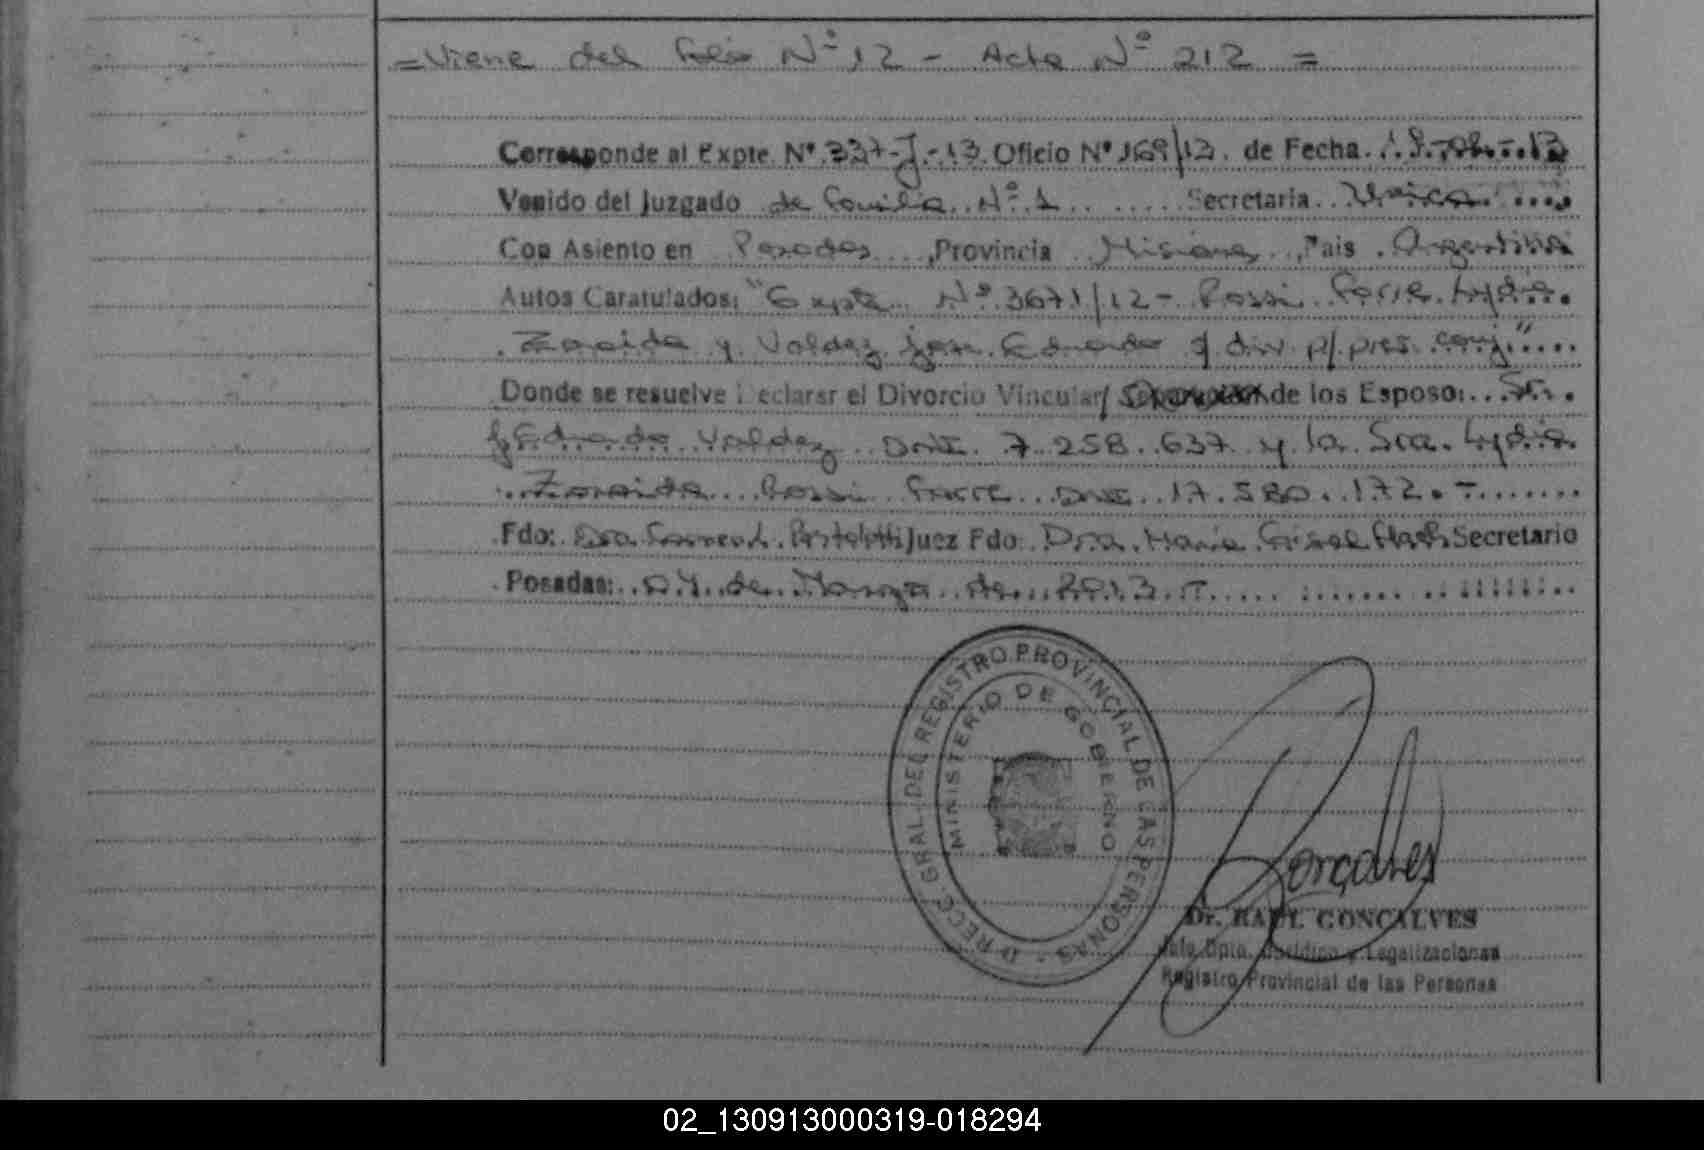 = Viene del folio Nº 12 - Acta Nº 212 =
Corresponde al Expte. Nº 337-J-13. Oficio Nº 169/13. de Fecha. 19-02-13
Venido del Juzgado de Familia Nº 1 Secretaria Unica
Con Asiento en Posadas, Provincia Misiones, Pais Argentina
Autos Caratulados: "Expte Nº 3671/12 - Rossi Forre Lydia
Zoraida y Valdez Eduardo s/ div p/ pres. conj"
Donde se resuelve Declarar el Divorcio Vincular/ de los Esposo: Sr.
Eduardo Valdez DNI 7.258.637 y la Sra. Lydia
Zoraida Rossi DNI 17.580.172.-
Fdo: Dra. Juez Fdo: Dra. Maria Secretario
Posadas: de Marzo de 2013.-
DIRECC. GRAL. DEL REGISTRO PROVINCIAL DE LAS PERSONAS
MINISTERIO DE GOBIERNO
Goncalves
Dr. RAUL GONCALVES
Jefe Dpto. Juridico y Legalizaciones
Registro Provincial de las Personas
02_130913000319-018294